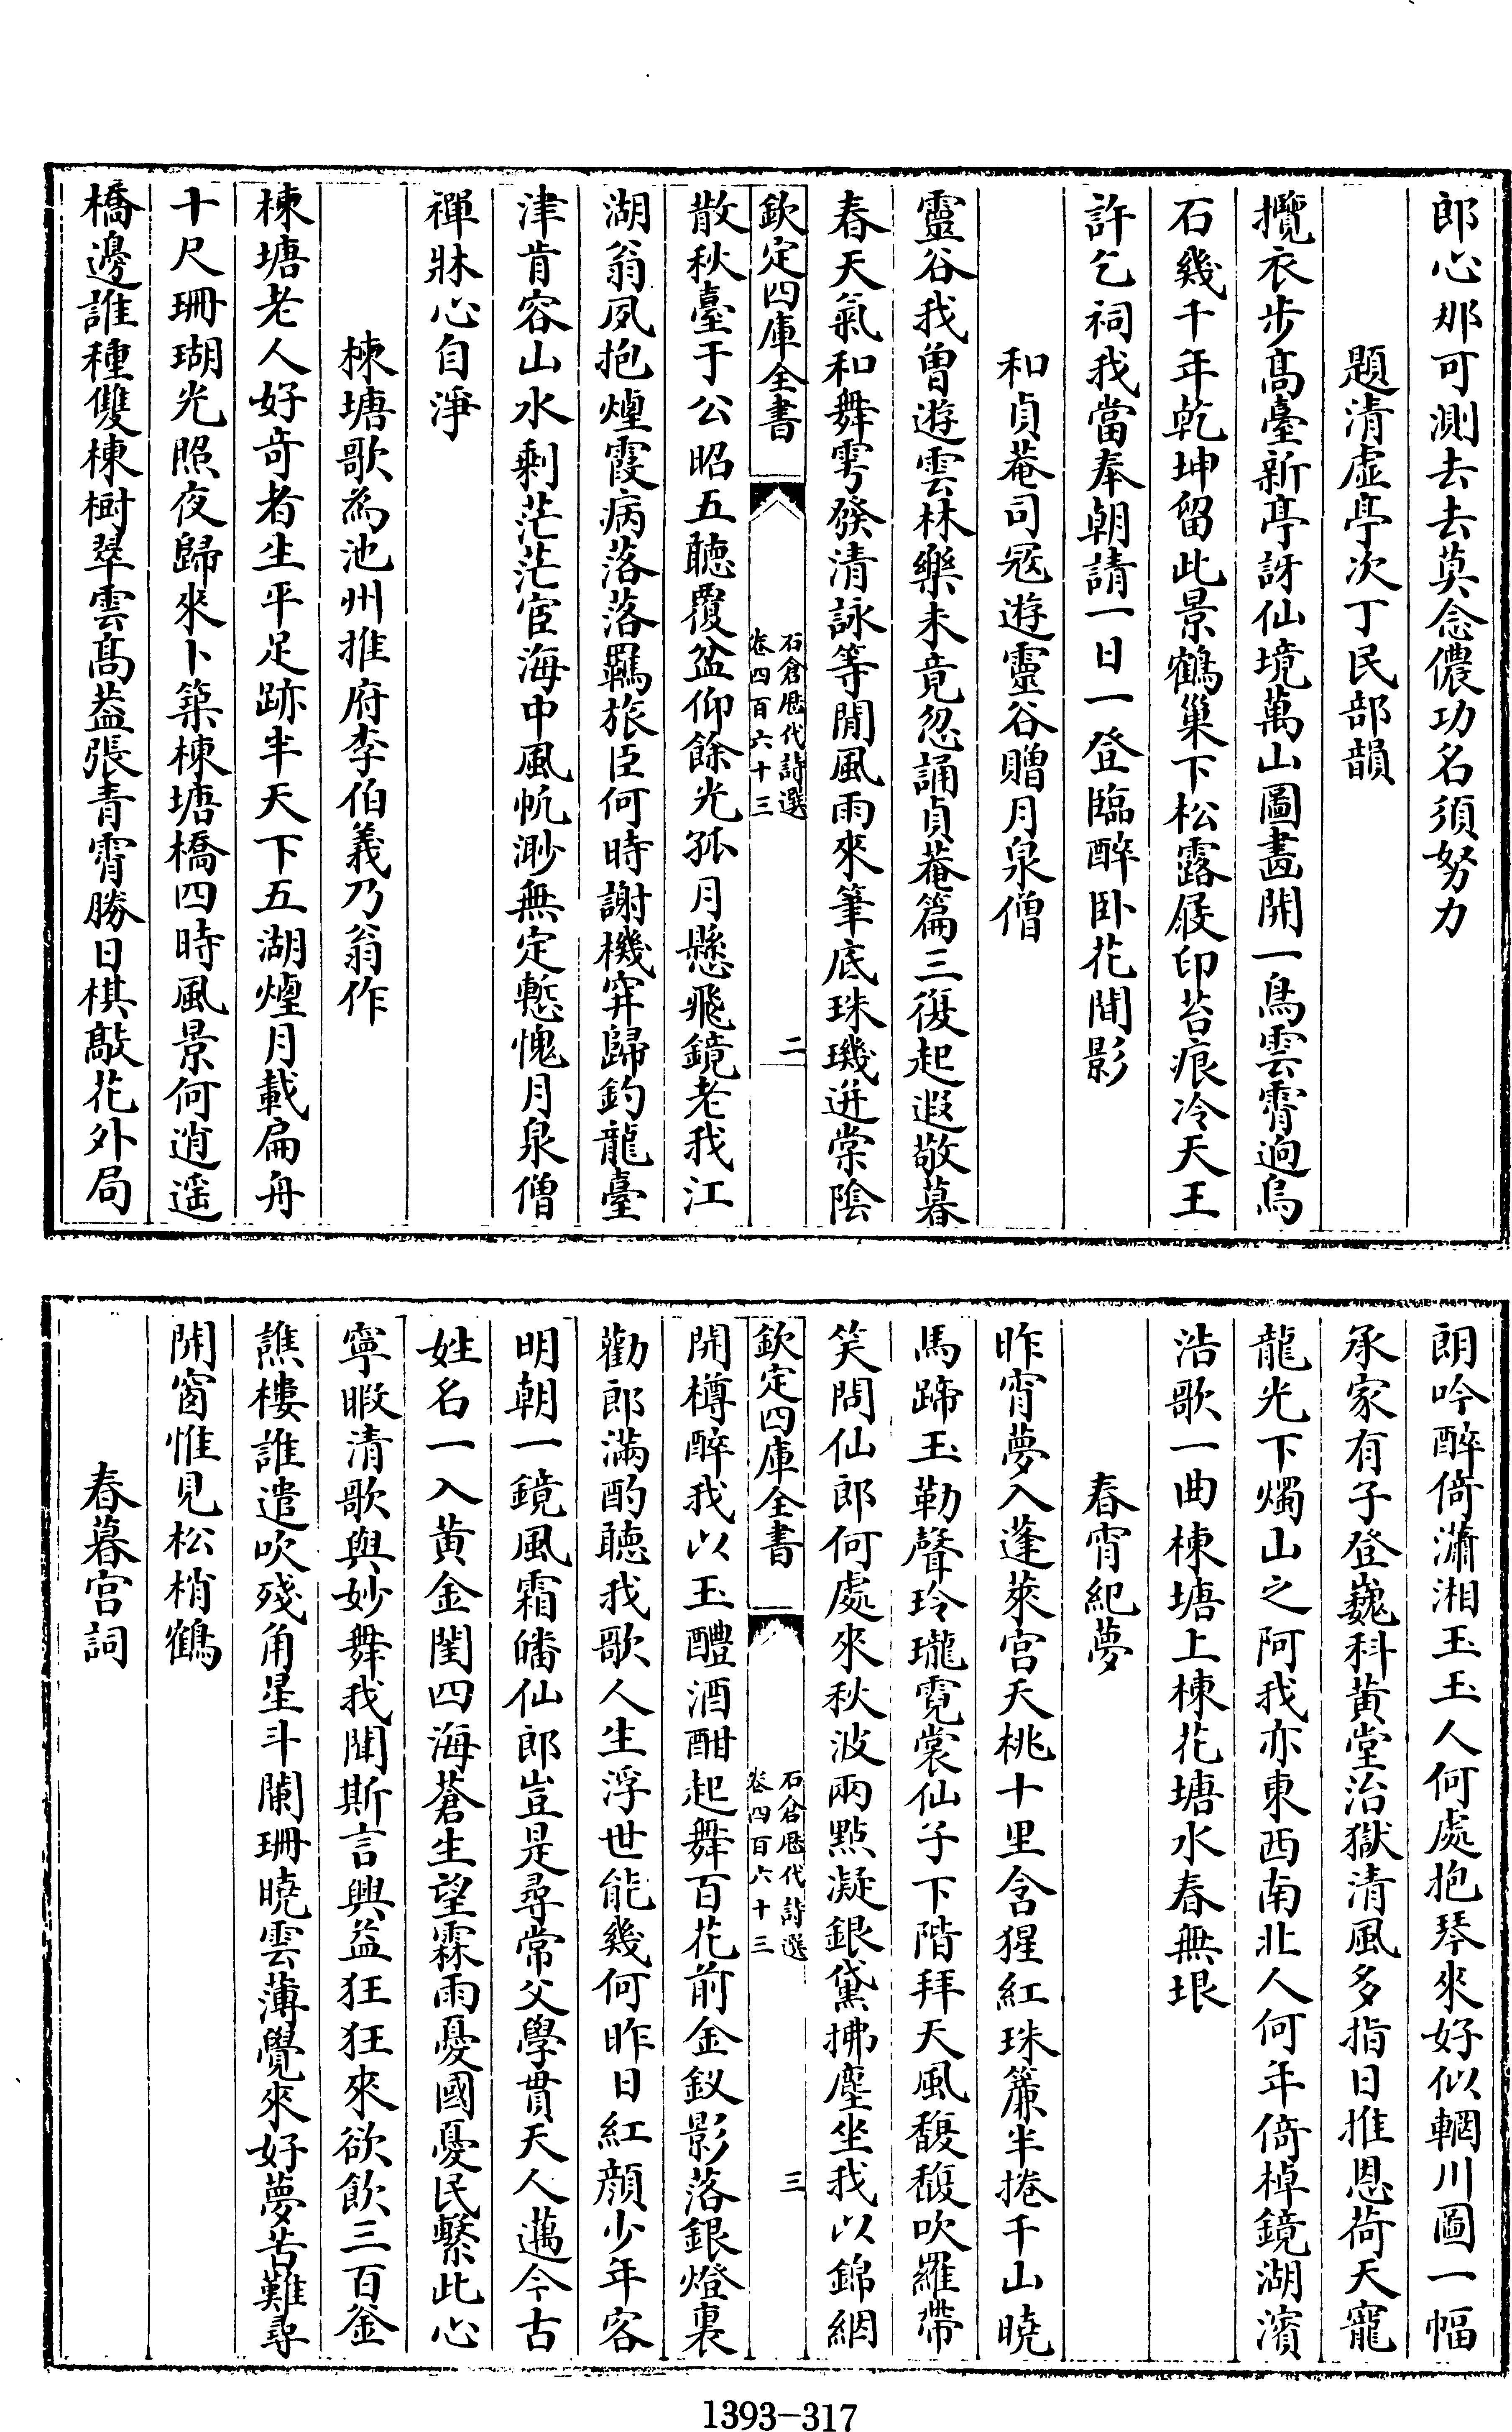 郎心那可測去去莫念儂功名須努力
題清虛亭次丁民部韻
攬衣步髙臺新亭訝仙境萬山圖畫開一鳥雲霄逈烏
石幾千年乾坤留此景鶴巢下松露屐印苔痕冷天王
許乞祠我當奉朝請一日一登臨醉卧花間影
和貞菴司冦遊靈谷贈月泉僧
靈谷我曽遊雲林樂未竟忽誦貞菴篇三復起遐敬暮
春天氣和舞雩發清詠等閒風雨來筆底珠璣迸棠陰
欽定四庫全書
石倉厯代詩選
卷四百六十三
二
散秋臺于公昭五聴覆盆仰餘光孤月懸飛鏡老我江
湖翁夙抱煙霞病落落羈旅臣何時謝機穽歸釣龍臺
津肯容山水剩茫茫宦海中風帆渺無定慙愧月泉僧
禪牀心自淨
棟塘歌為池州推府李伯義乃翁作
棟塘老人好奇者生平足跡半天下五湖煙月載扁舟
十尺珊瑚光照夜歸來卜築棟塘橋四時風景何逍遥
橋邊誰種雙棟樹翠雲髙葢張青霄勝日棋敲花外局
朗吟醉倚瀟湘玉玉人何處抱琴來好似輞川圖一幅
承家有子登巍科黄堂治獄清風多指日推恩荷天寵
龍光下燭山之阿我亦東西南北人何年倚棹鏡湖濱
浩歌一曲棟塘上棟花塘水春無垠
春宵紀夢
昨宵夢入蓬萊宫天桃十里含猩紅珠簾半捲千山曉
馬蹄玉勒聲玲瓏霓裳仙子下階拜天風馥馥吹羅帶
笑問仙郎何處來秋波兩點凝銀黛拂塵坐我以錦絪
欽定四庫全書
石倉厯代詩選
卷四百六十三
三
開樽醉我以玉醴酒酣起舞百花前金釵影落銀燈裏
勸郎滿酌聴我歌人生浮世能幾何昨日紅顔少年客
明朝一鏡風霜皤仙郎豈是尋常父學貫天人邁今古
姓名一入黄金閨四海蒼生望霖雨憂國憂民繫此心
寧暇清歌與妙舞我聞斯言興益狂狂來欲飲三百釜
譙樓誰遣吹殘角星斗闌珊曉雲薄覺來好夢苦難尋
開窗惟見松梢鶴
春暮宫詞
1393-317